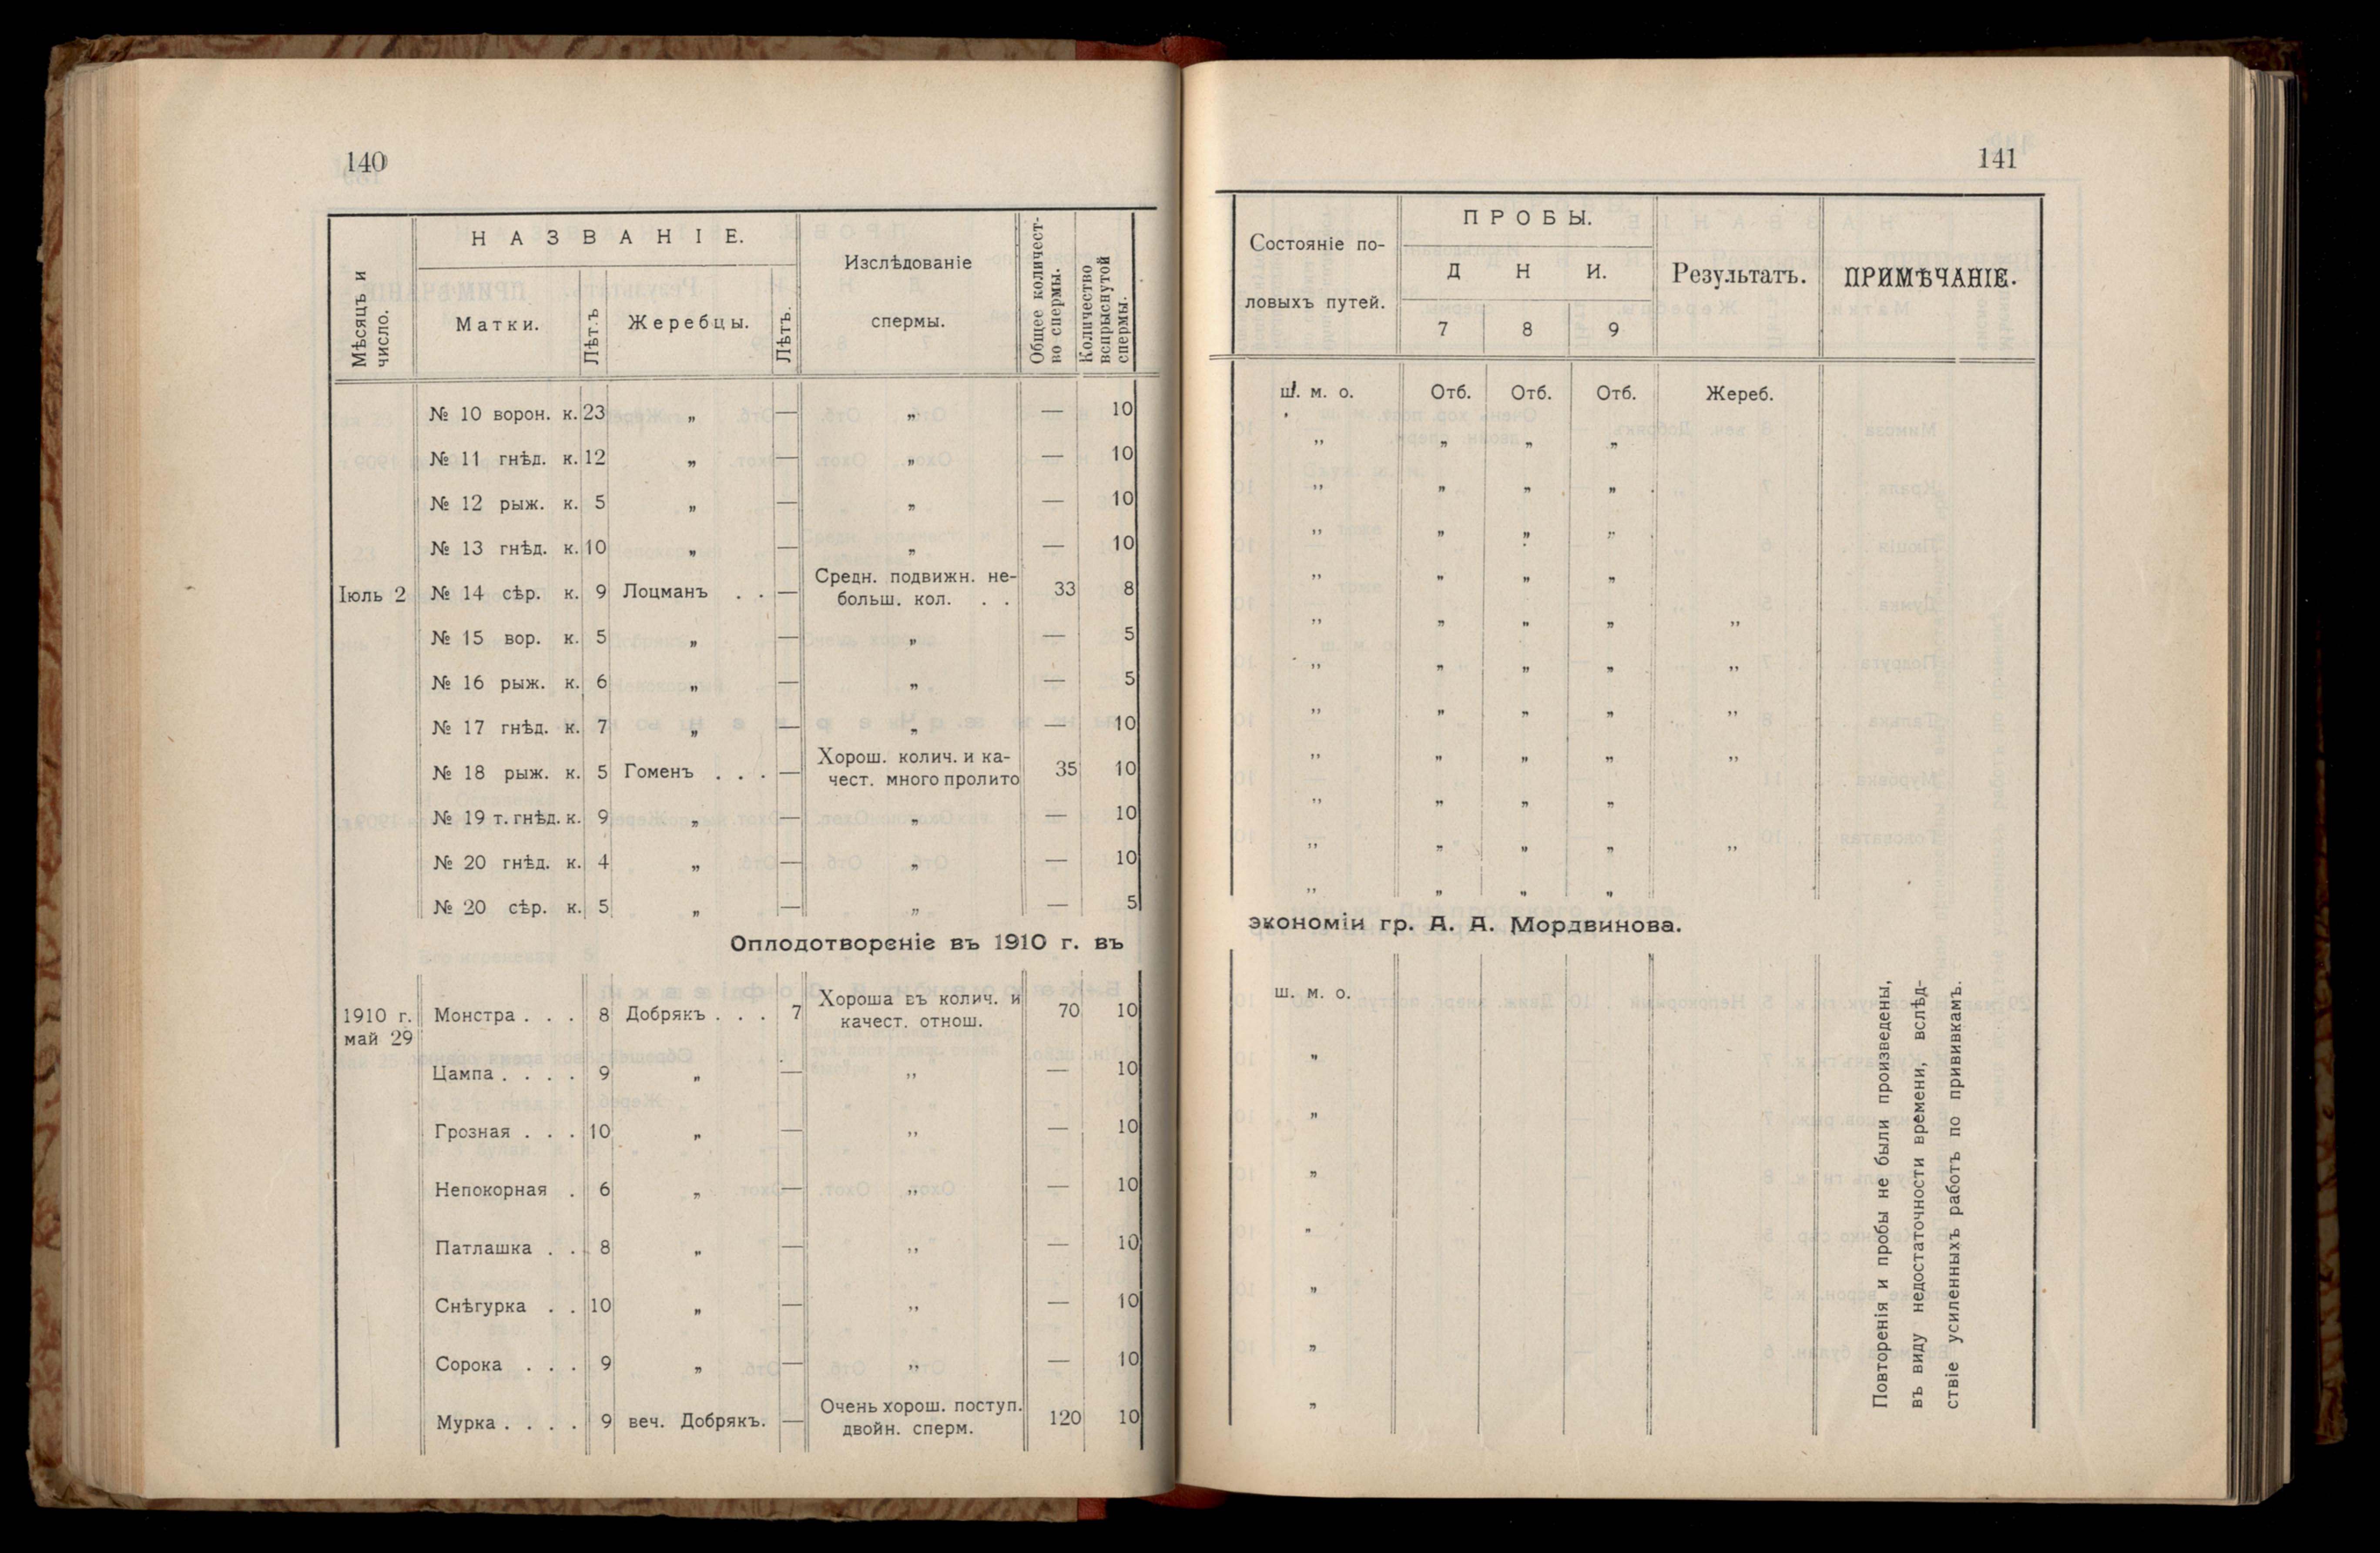 140
Мѣсяцъ и число.
НАЗВАНІЕ.
Матки.
Лѣтъ
Жеребцы.
Лѣтъ.
Изслѣдованіе
спермы.
Общее количест-
во спермы.
Количество
вспрыснутой
спермы.
№ 10 ворон. к. 23 „ — „ — 10
№ 11 гнѣд. к. 12 „ — „ — 10
№ 12 рыж. к. 5 „ — „ — 10
№ 13 гнѣд. к. 10 „ — „ — 10
Іюль 2 № 14 сѣр. к. 9 Лоцманъ . . — Средн. подвижн. не- 33 8
больш. кол. . .
№ 15 вор. к. 5 „ — „ — 5
№ 16 рыж. к. 6 „ — „ — 5
№ 17 гнѣд. к. 7 „ — „ — 10
№ 18 рыж. к. 5 Гоменъ . . . — Хорош. колич. и ка- 35 10
чест. много пролито
№ 19 т. гнѣд. к. 9 „ — „ — 10
№ 20 гнѣд. к. 4 „ — „ — 10
№ 20 сѣр. к. 5 „ — „ — 5
Оплодотвореніе въ 1910 г. въ
1910 г. Монстра . . . 8 Добрякъ . . . 7 Хороша въ колич. и 70 10
май 29 качест. отнош.
Цампа . . . . 9 „ — „ — 10
Грозная . . . 10 „ — „ — 10
Непокорная . 6 „ — „ — 10
Патлашка . . 8 „ — „ — 10
Снѣгурка . . 10 „ — „ — 10
Сорока . . . 9 „ — „ — 10
Мурка . . . . 9 веч. Добрякъ. — Очень хорош. поступ. 120 10
двойн. сперм.
141
Состояніе по-
ловыхъ путей.
ПРОБЫ.
ДНИ.
7 8 9
Результатъ.
ПРИМѢЧАНІЕ.
ш. м. о. Отб. Отб. Отб. Жереб.
„ „ „ „
„ „ „ „
„ „ „ „
„ „ „ „
„ „ „ „ „
„ „ „ „ „
„ „ „ „ „
„ „ „ „ „
„ „ „ „
„ „ „ „ „
„ „ „ „
экономіи гр. А. А. Мордвинова.
ш. м. о.
„
„
„
„
„
„
„
Повторенія и пробы не были произведены,
въ виду недостаточности времени, вслѣд-
ствіе усиленныхъ работъ по прививкамъ.